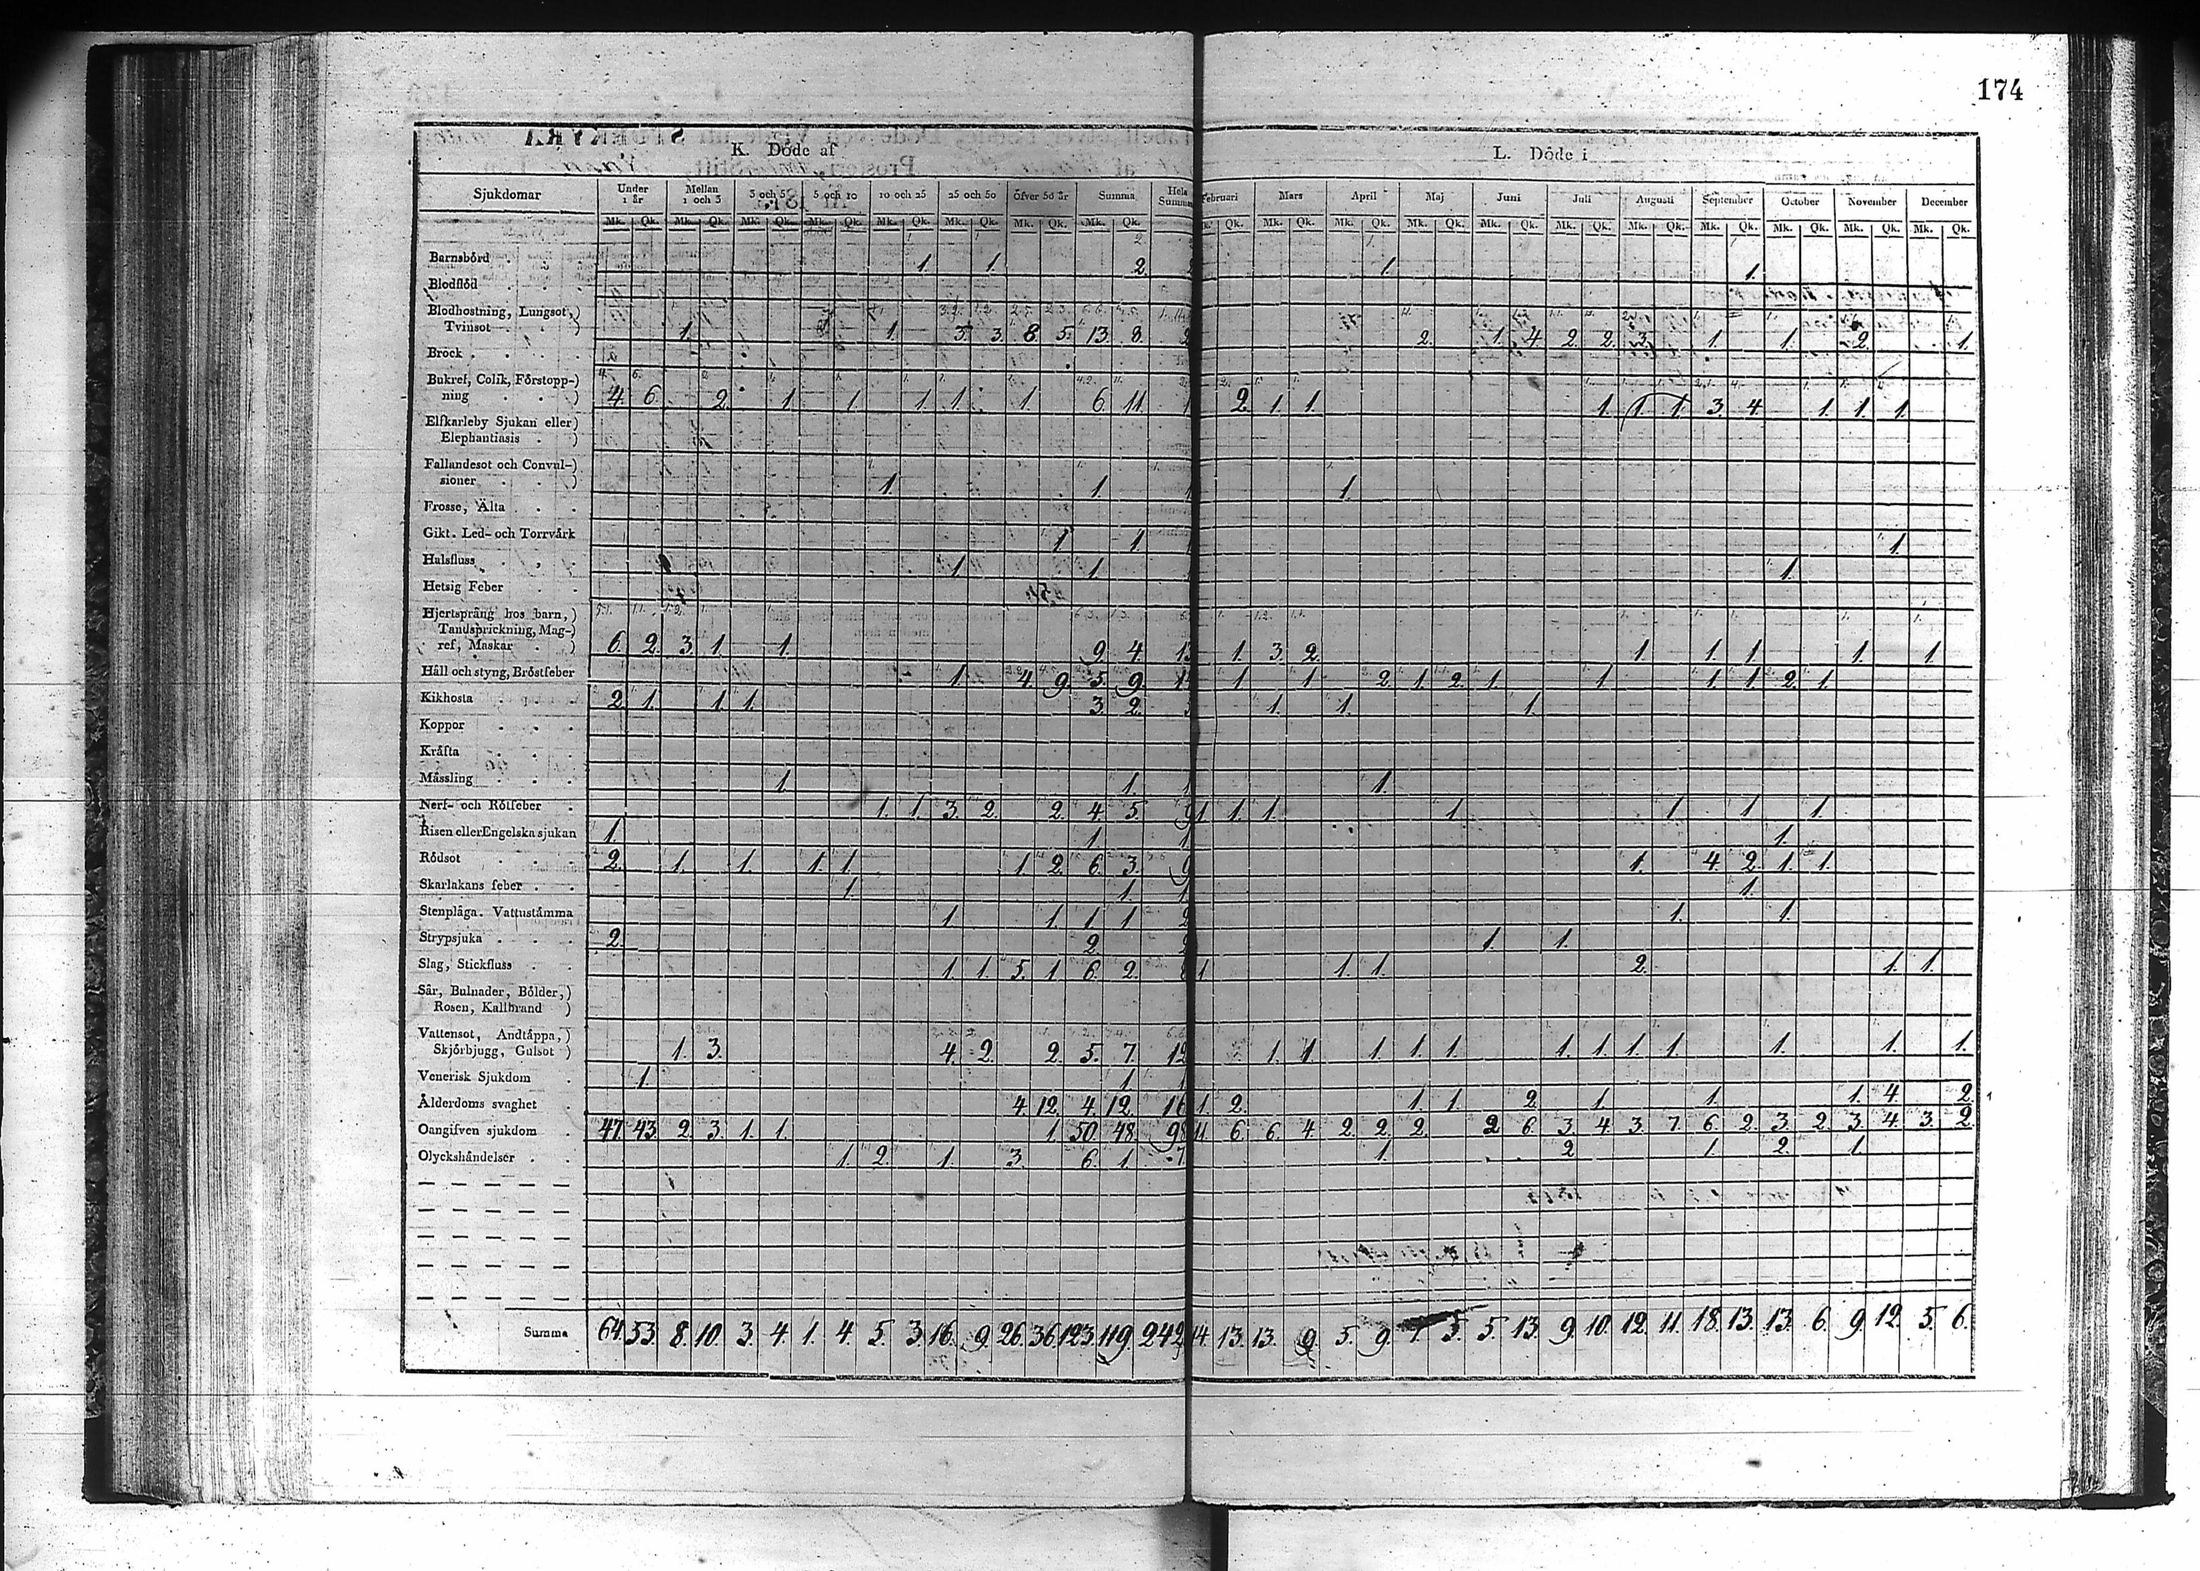 174
K. Döde af
L. Döde i
Sjukdomar | Under 1 år | Mellan 1 och 3 | 3 och 5 | 5 och 10 | 10 och 25 | 25 och 50 | Öfver 50 år | Summa | Hela Summa | Februari | Mars | April | Maj | Juni | Juli | Augusti | September | October | November | December
Mk. Qk. Mk. Qk. Mk. Qk. Mk. Qk. Mk. Qk. Mk. Qk. Mk. Qk. Mk. Qk. Qk. Mk. Qk. Mk. Qk. Mk. Qk. Mk. Qk. Mk. Qk. Mk. Qk. Mk. Qk. Mk. Qk. Mk. Qk. Mk. Qk.
Barnsbörd 1. 1. 2. 1. 1.
Blodflöd
Blodhostning, Lungsot,)
Tvinsot 1. 1. 3. 3. 8. 5. 13. 8. 2. 1. 4 2 2. 3. 1. 1. 2. 1.
Bröck
Bukref, Colik, Förstopp-)
ning 4. 6. 2. 1. 1. 1. 1. 1. 6. 11. 2. 1. 1. 1. 1. 1. 3. 4. 1. 1. 1.
Elfkarleby Sjukan eller)
Elephantiasis
Fallandesot och Convul-)
sioner 1. 1. 1.
Frosse, Älta
Gikt. Led- och Torrvärk 1. 1. 1.
Halsfluss 1. 1. 1.
Hetsig Feber
Hjertsprång hos barn,)
Tandsprickning, Mag-)
ref, Maskar 6. 2. 3. 1. 1. 9. 4. 13 1. 3. 2. 1. 1. 1. 1. 1.
Håll och styng, Bröstfeber 1. 4. 9. 5. 9. 1. 1. 2. 1. 2. 1. 1. 1. 1. 2. 1.
Kikhosta 2. 1. 1. 1. 3. 2. 1. 1. 1.
Koppor
Kräfta
Mässling 1. 1. 1 1.
Nerf- och Rötfeber 1. 1. 3. 2. 2. 4. 5. 9 1. 1. 1. 1. 1. 1. 1.
Risen eller Engelska sjukan 1. 1. 1 1.
Rödsot 2. 1. 1. 1. 1. 1. 2. 6. 3. 9 1. 4. 2. 1. 1.
Skarlakans feber 1. 1. 1 1.
Stenplåga. Vattustämma 1. 1. 1. 1. 2 1. 1.
Strypsjuka 2. 2. 2 1. 1.
Slag, Stickfluss 1. 1. 5. 1. 6. 2. 8 1 1. 1. 2. 1. 1.
Sår, Bulnader, Bölder,)
Rosen, Kallbrand )
Vattensot, Andtäppa,)
Skjörbjugg, Gulsot ) 1. 3. 4. 2. 2. 5. 7. 12 1. 1. 1. 1. 1. 1. 1. 1. 1. 1. 1. 1.
Venerisk Sjukdom 1. 1. 1
Ålderdoms svaghet 4. 12. 4. 12. 16 1. 2. 1. 1. 2. 1. 1. 1. 4. 2.
Oangifven sjukdom 47. 43. 2. 3. 1. 1. 1. 50. 48. 98 11. 6. 6. 4. 2. 2. 2. 2 6. 3. 4. 3. 7. 6. 2. 3. 2. 3. 4. 3. 2.
Olyckshändelser 1. 2. 1. 3. 6. 1. 7 1. 2. 1. 2. 1.
Summa 64. 53. 8. 10. 3. 4. 1. 4. 5. 3. 16. 9. 26. 36. 123. 119. 242 14. 13. 13. 9. 5. 9. 7. 5. 5. 13. 9. 10. 12. 11. 18. 13. 13. 6. 9. 12. 5. 6.